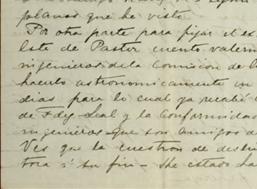 planas que he visto
Por otra parte para fijar el es
lste de Pastor cuento valerm
ingenieros de la Comision de l
hacerlo astronomicamente en
dias para lo cual ya recibí
de Rey Leal y la Conformidad
ingenieros que son amigos d
Ves que la cuestion de deslin
toca a su fin. She estado ha